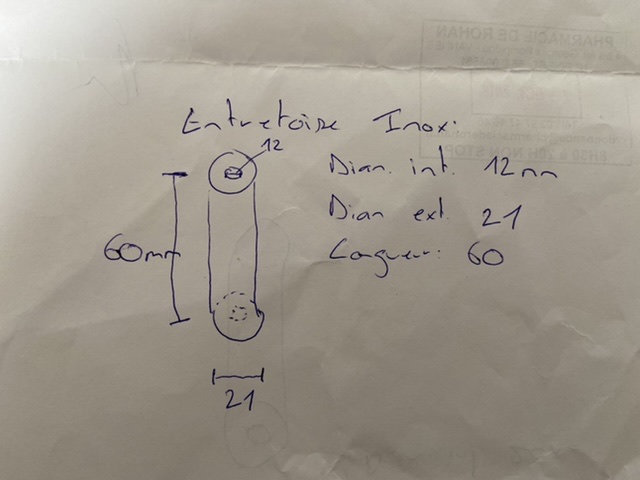 Entretoise Inox.
12
Diam. int. 12mm
Diam ext. 21
60mm
Longueur: 60
21
PHARMACIE DE ROHAN